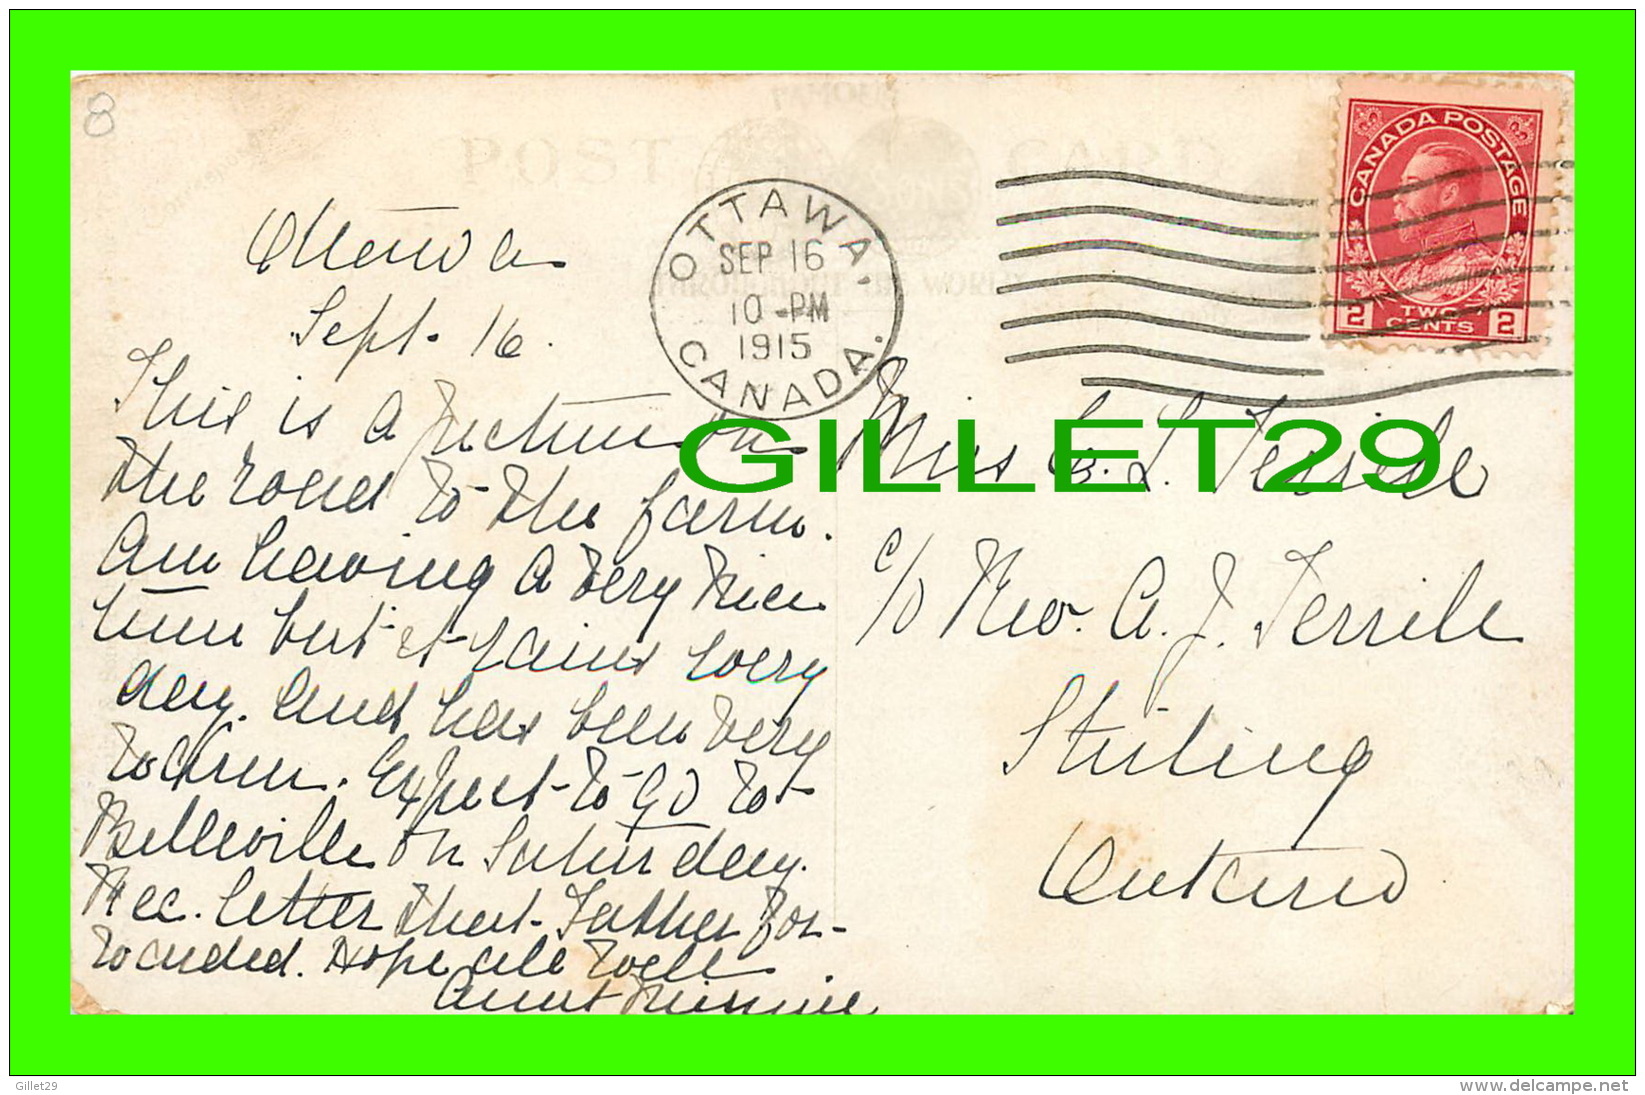 8
POST CARD
THROUGHOUT THE WORLD
OTTAWA
SEP 16
10-PM
1915
CANADA.
CANADA POSTAGE
2 TWO CENTS 2
Ottawa
Sept. 16.
This is a picture on
the road to the farm.
Am having a very nice
time but it rains every
day. And has been very
warm. Expect to go to
Belleville on Saturday.
Rec. letter that Father for-
warded. Hope all well.
Aunt Minnie
Miss G. L. Terrill
c/o Rev. A. J. Terrill
Stirling
Ontario
GILLET29
Gillet29
www.delcampe.net